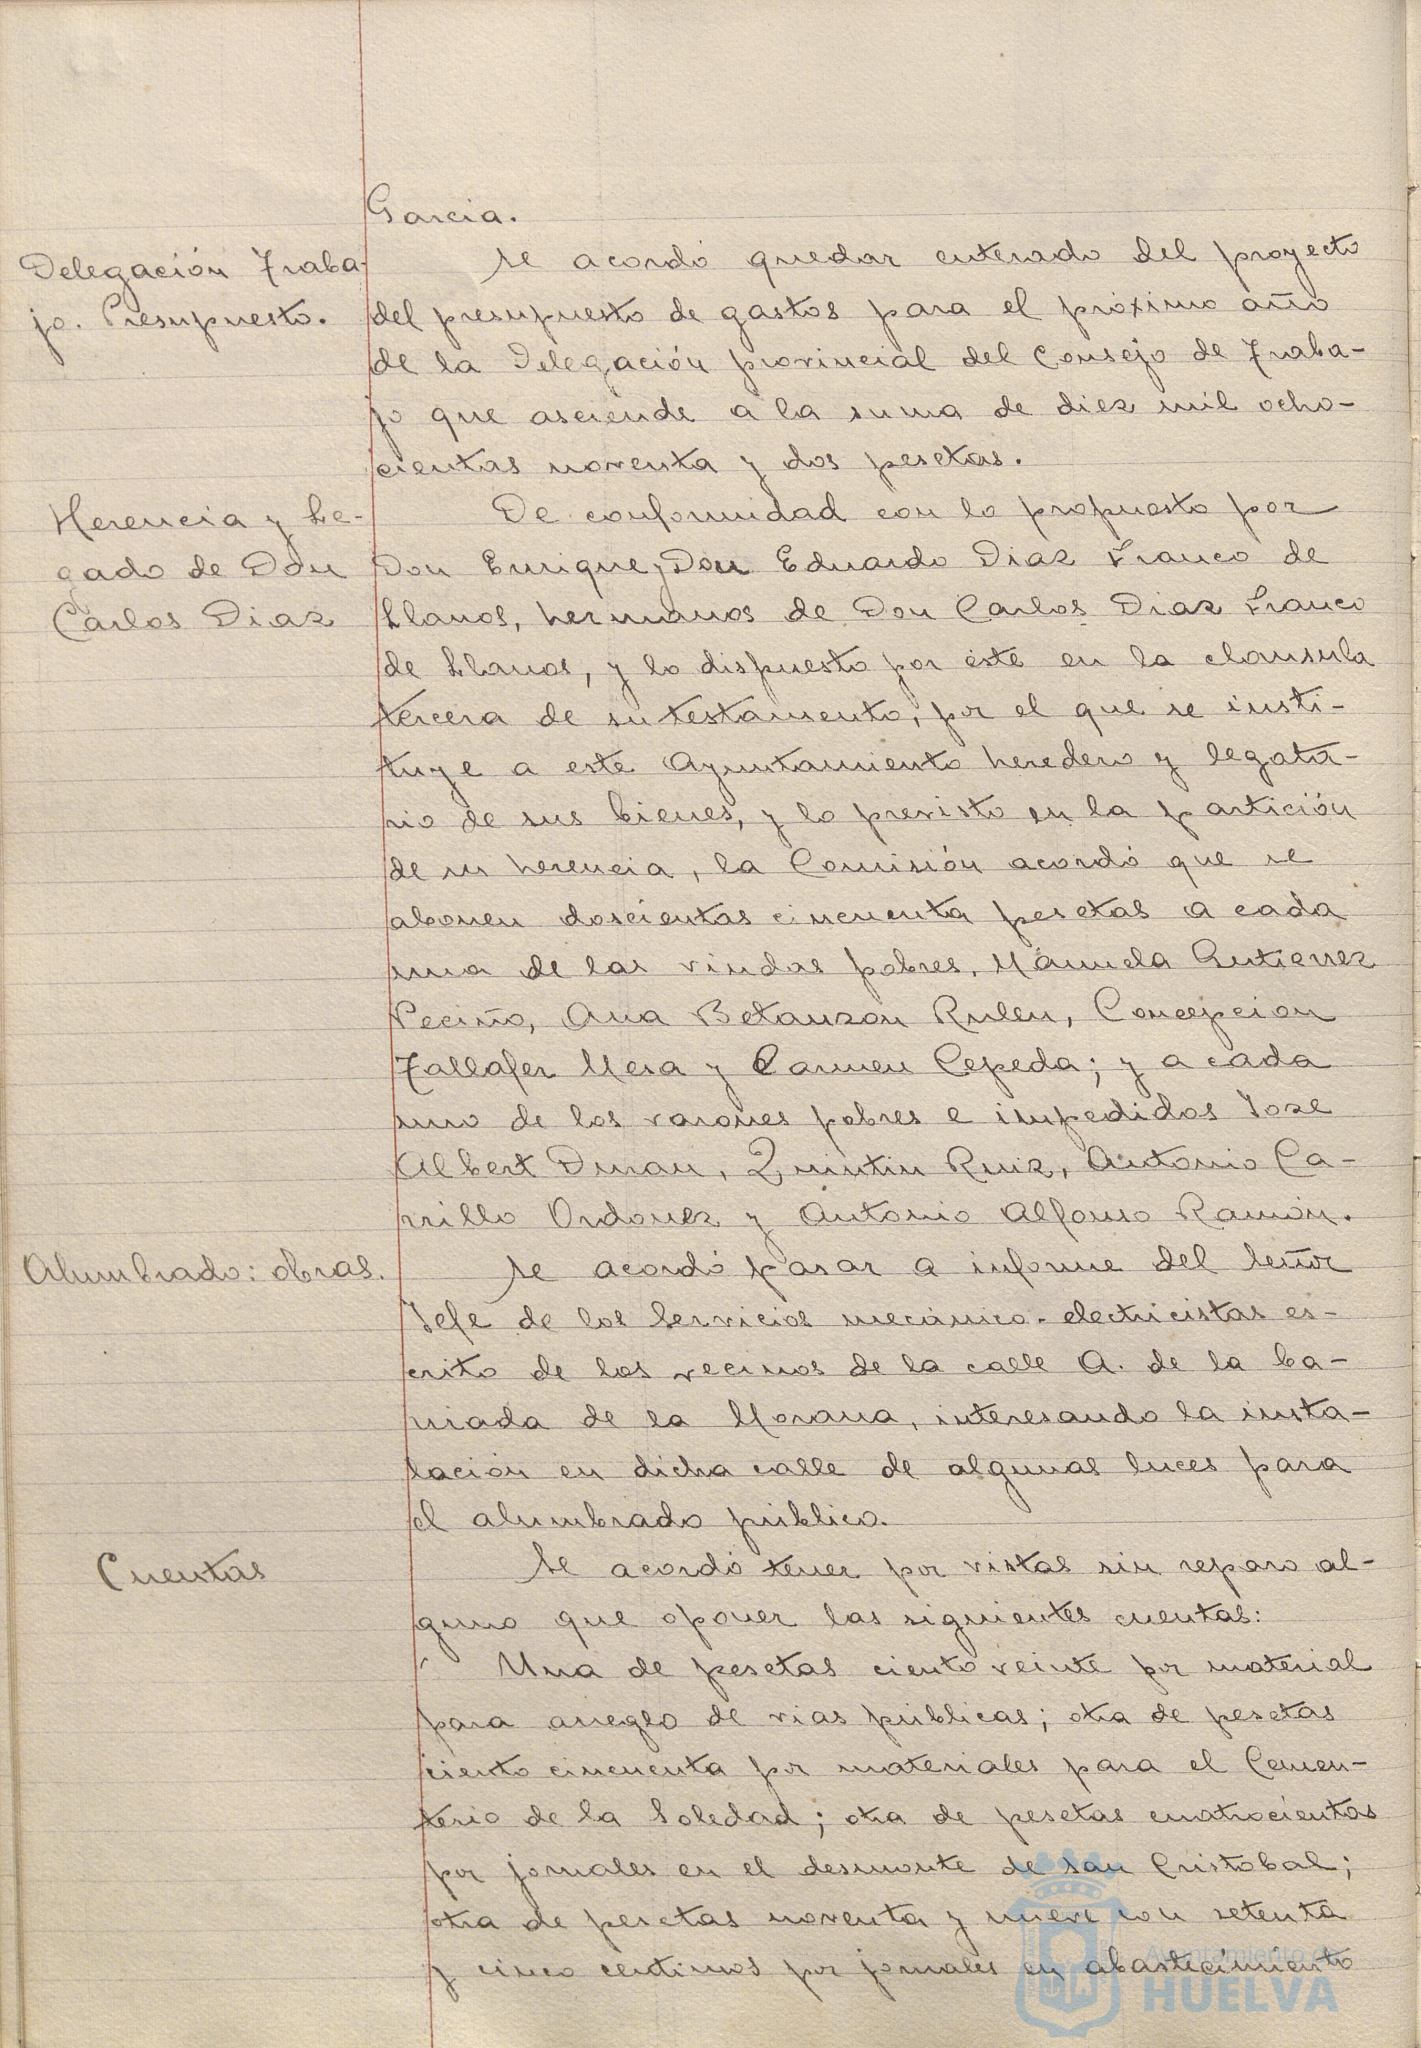 Garcia.
Delegación Traba-
jo. Presupuesto.
Se acordó quedar enterado del proyecto
del presupuesto de gastos para el próximo año
de la Delegación provincial del Consejo de Traba-
jo que asciende a la suma de diez mil ocho-
cientas noventa y dos pesetas.
Herencia y Le-
gado de Don
Carlos Diaz
De conformidad con lo propuesto por
Don Enrique y Don Eduardo Diaz Franco de
Llanos, hermanos de Don Carlos Diaz Franco
de Llanos, y lo dispuesto por éste en la clausula
tercera de su testamento, por el que se insti-
tuye a este Ayuntamiento heredero y legata-
rio de sus bienes, y lo previsto en la partición
de su herencia, la Comisión acordó que se
abonen doscientas cincuenta pesetas a cada
una de las viudas pobres, Manuela Gutierrez
Peciño, Ana Betanzon Rulen, Concepcion
Tallafer Mesa y Carmen Cepeda; y a cada
uno de los varones pobres e impedidos Jose
Albert Duran, Quintin Ruiz, Antonio Ca-
rrillo Ordoñez y Antonio Alfonso Ramón.
Alumbrado: obras.
Se acordó pasar a informe del Señor
Jefe de los Servicios mecánico-electricistas es-
crito de los vecinos de la calle A. de la ba-
rriada de la Morana, interesando la insta-
lación en dicha calle de algunas luces para
el alumbrado público.
Cuentas
Se acordó tener por vistas sin reparo al-
guno que oponer las siguientes cuentas:
Una de pesetas ciento veinte por material
para arreglo de vias públicas; otra de pesetas
ciento cincuenta por materiales para el Cemen-
terio de la Soledad; otra de pesetas cuatrocientas
por jornales en el desmonte de San Cristobal;
otra de pesetas noventa y nueve con setenta
y cinco centimos por jornales en abastecimiento
Ayuntamiento de
HUELVA